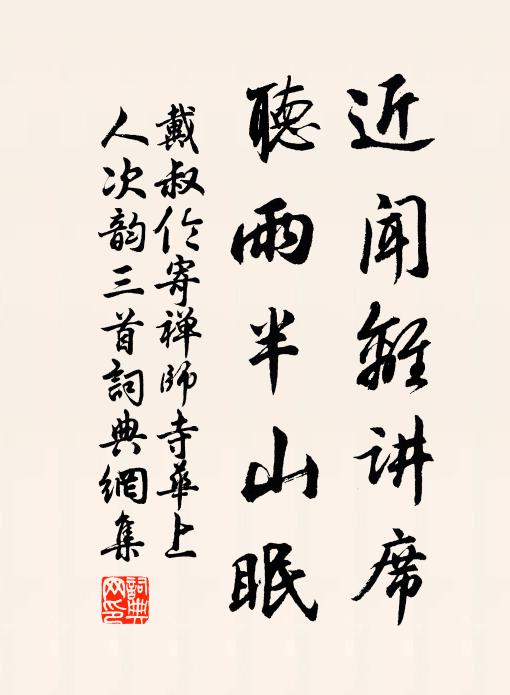 近闻離讲席
聽雨半山眠
戴叔伦寄禅師寺華上
人次韵三首詞典網集
詞典網印